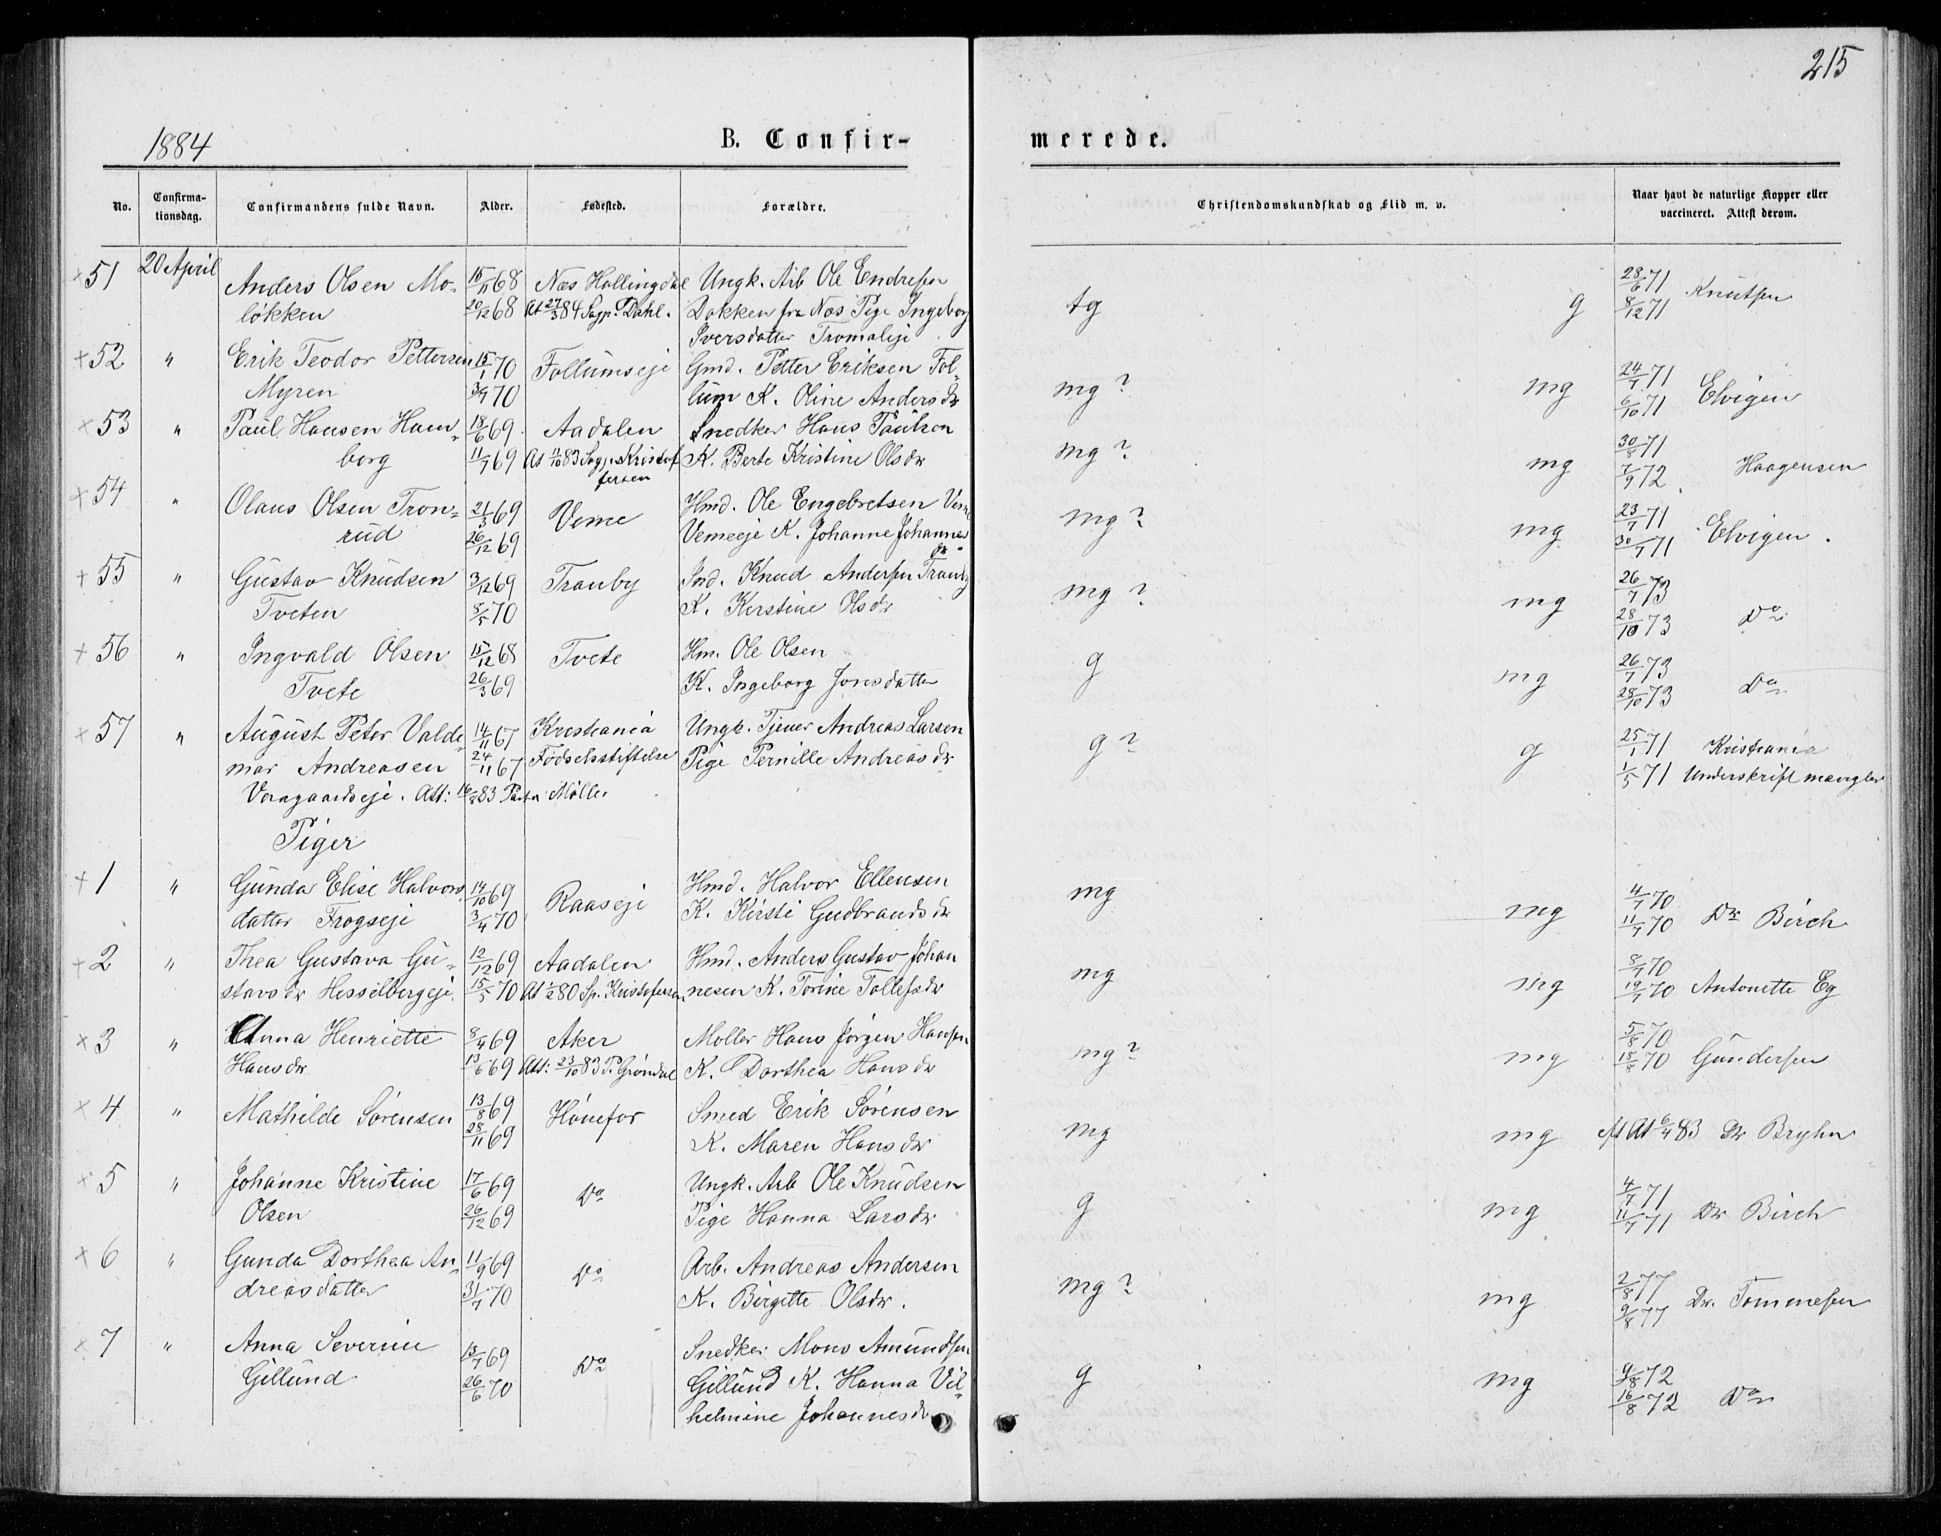 215
1884
B. Confir-
merede.
No.
Confirma-
tionsdag.
Confirmandens fulde Navn.
Alder.
Fødested.
Forældre.
Christendomskundskab og Flid m. v.
Naar havt de naturlige Kopper eller
vaccineret. Attest derom.
51 20 April Anders Olsen Mo- 68 Næs Hallingdal Ungk. Arb Ole Endresen tg g 28/6 71 Knutsen
løkken 20/12 68 At 27/3 84 Sogp. Dahl. Dokken fra Næs Pige Ingeborg 8/12 71
Iversdatter
52 " Erik Teodor Pettersen 15/1 70 Follumseje Gmd. Petter Eriksen Fol- mg ? mg 24/7 71 Elvigen
Myren 3/7 70 lum K. Oline Andersdr 6/10 71
53 " Paul Hansen Ham- 18/6 69 Aadalen Snedker Hans Paulson mg ? mg 30/8 71 Haagensen
borg 11/7 69 At 11/10 83 Sogp. Kristof K. Berte Kristine Olsdr 7/9 72
fersen
54 " Olaus Olsen Tron- 21/3 69 Veme Hmd. Ole Engebretsen mg ? mg 23/7 71 Elvigen.
rud 26/12 69 Vemeeje K. Johanne Johannes 30/7 71
dr.
55 " Gustav Knudsen 3/12 69 Tranby Ind. Knud Andersen Tranby mg ? mg 26/7 73 Do
Tveten 8/5 70 K. Kerstine Olsdr 28/10 73
56 " Ingvald Olsen 15/12 68 Tvete Hm. Ole Olsen g mg 26/7 73 Do
Tvete 26/3 69 K. Ingeborg Jonsdatter 28/10 73
57 " August Peter Valde- 14/11 67 Kristiania Ungk. Tjener Andreas Larsen g ? g 25/1 71 Kristiania
mar Andreasen 24/11 67 Fødselsstiftelse Pige Pernille Andreasdr 1/5 71 Underskrift mangler
Att: 83 Møller
Piger
1 " Gunda Elise Halvors 14/10 69 Raaseje Hmd. Halvor Ellensen mg mg 4/7 70 Dr Birch
datter Frogseje 3/4 70 K. Kirsti Gudbrandsdr 11/7 70
2 " Thea Gustava Gu- 12/12 69 Aadalen Hmd. Anders Gustav Johan mg mg 8/7 70 Antonette Eg
stavsdr Hesselbergeje. 15/5 70 At 80 Sp. Kristofersen nesen K. Torine Tollefsdr 19/7 70
3 " Anna Henriette 8/4 69 Aker Møller Hans Jørgen Hansen mg ? mg 5/8 70 Gundersen
Hansdr 13/6 69 Att: 23/10 83 P. Grøndal K. Dorthea Hansdr 18/8 70
4 " Mathilde Sørensen 13/8 69 Hønefos Smed Erik Sørensen mg mg At 6/4 83 Dr Bryhn
28/11 69 K. Maren Hansdr
5 " Johanne Kristine 17/6 69 Do Ungk. Arb Ole Knudsen g mg 4/7 71 Dr Birch
Olsen 26/12 69 Pige Hanna Larsdr 11/7 71
6 " Gunda Dorthea An- 11/9 69 Do Arb. Andreas Andersen mg ? mg 2/8 77 Dr. Tommesen
dreasdatter 31/7 70 K. Birgitte Olsdr. 9/8 77
7 " Anna Severine 13/7 69 Do Snedker Mons Amundsen g mg 9/8 72 Do
Gillund 26/6 70 Gillund K. Hanna Vil- 16/8 72
helmine Johannesdr